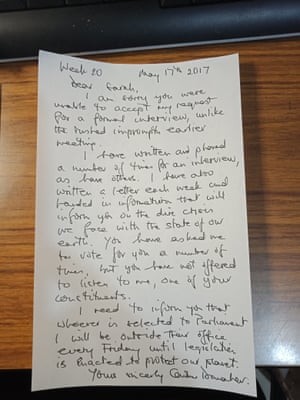 Week 20 May 17th 2017
Dear Sarah,
I am sorry you were
unable to accept my request
for a formal interview, unlike
the rushed impromptu earlier
meeting.
I have written and phoned
a number of times for an interview,
as have others. I have also
written a letter each week and
handed in information that will
inform you on the dire choices
we face with the state of our
earth. You have asked me
to vote for you a number of
times, but you have not offered
to listen to me, one of your
constituents.
I need to inform you that
whoever is selected to Parliament
I will be outside their office
every Friday until legislation
is enacted to protect our planet.
Yours sincerely